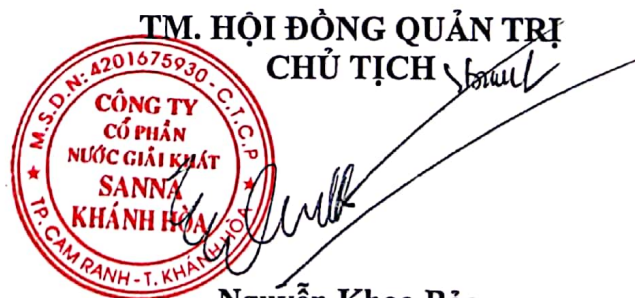 TM. HỘI ĐỒNG QUẢN TRỊ
CHỦ TỊCH
M.S.D.N: 4201675930 - C.T.C.P
CÔNG TY
CỔ PHẦN
NƯỚC GIẢI KHÁT
SANNA
KHÁNH HÒA
TP. CAM RANH - T. KHÁNH HÒA
Nguyễn Khoa